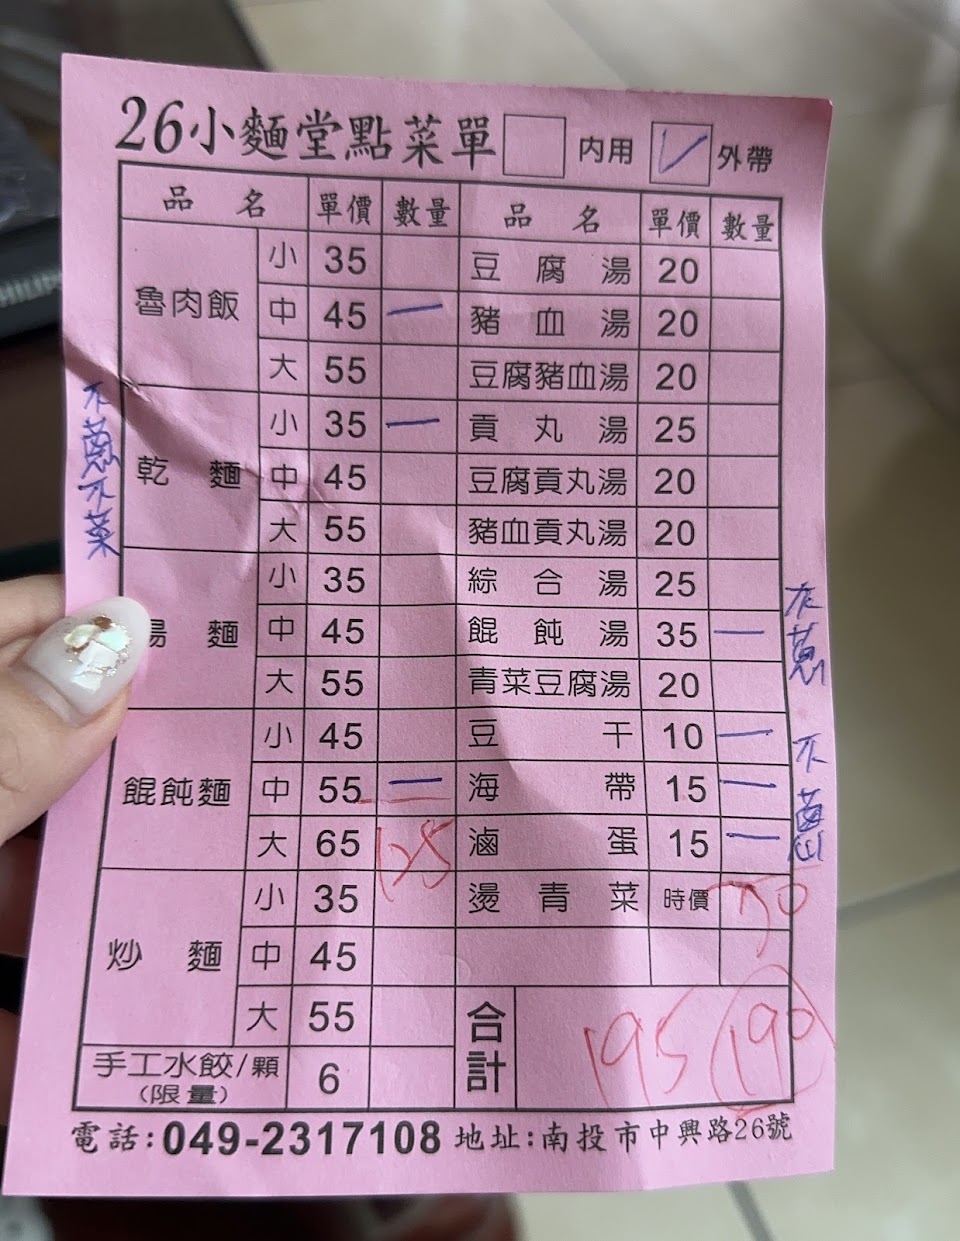 26小麵堂點菜單 內用 ✓ 外帶
品名 單價 數量 品名 單價 數量
魯肉飯 小 35 豆腐湯 20
中 45 一 豬血湯 20
大 55 豆腐豬血湯 20
乾麵 小 35 一 貢丸湯 25
中 45 豆腐貢丸湯 20
大 55 豬血貢丸湯 20
小 35 綜合湯 25
湯麵 中 45 餛飩湯 35 一
大 55 青菜豆腐湯 20
餛飩麵 小 45 豆干 10 一
中 55 一 海帶 15 一
大 65 135 滷蛋 15 一
炒麵 小 35 燙青菜 時價 70
中 45
大 55 合計 195 190
手工水餃/顆 6
(限量)
電話:049-2317108 地址:南投市中興路26號
不蔥不菜
不蔥.不